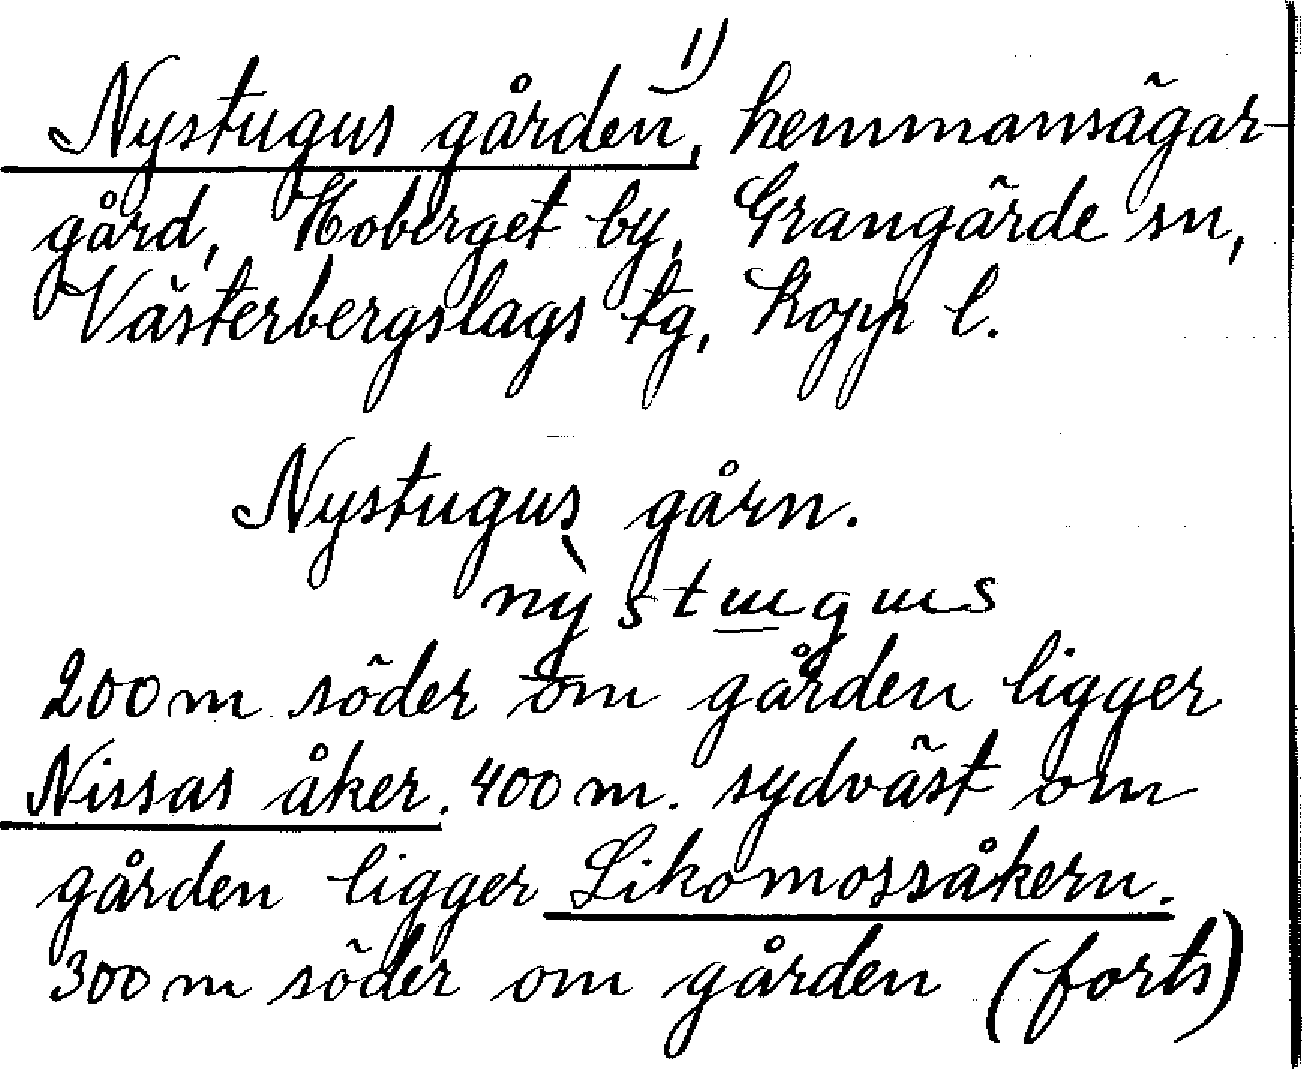 Nystugus gården, 1) hemmansägar-
gård, Hoberget by, Grangärde sn,
Västerbergslags tg, Kopp l.
Nystugus gårn.
nỳstugus
200 m söder om gården ligger
Nissas åker. 400 m. sydväst om
gården ligger Likomossåkern.
300 m söder om gården (forts)